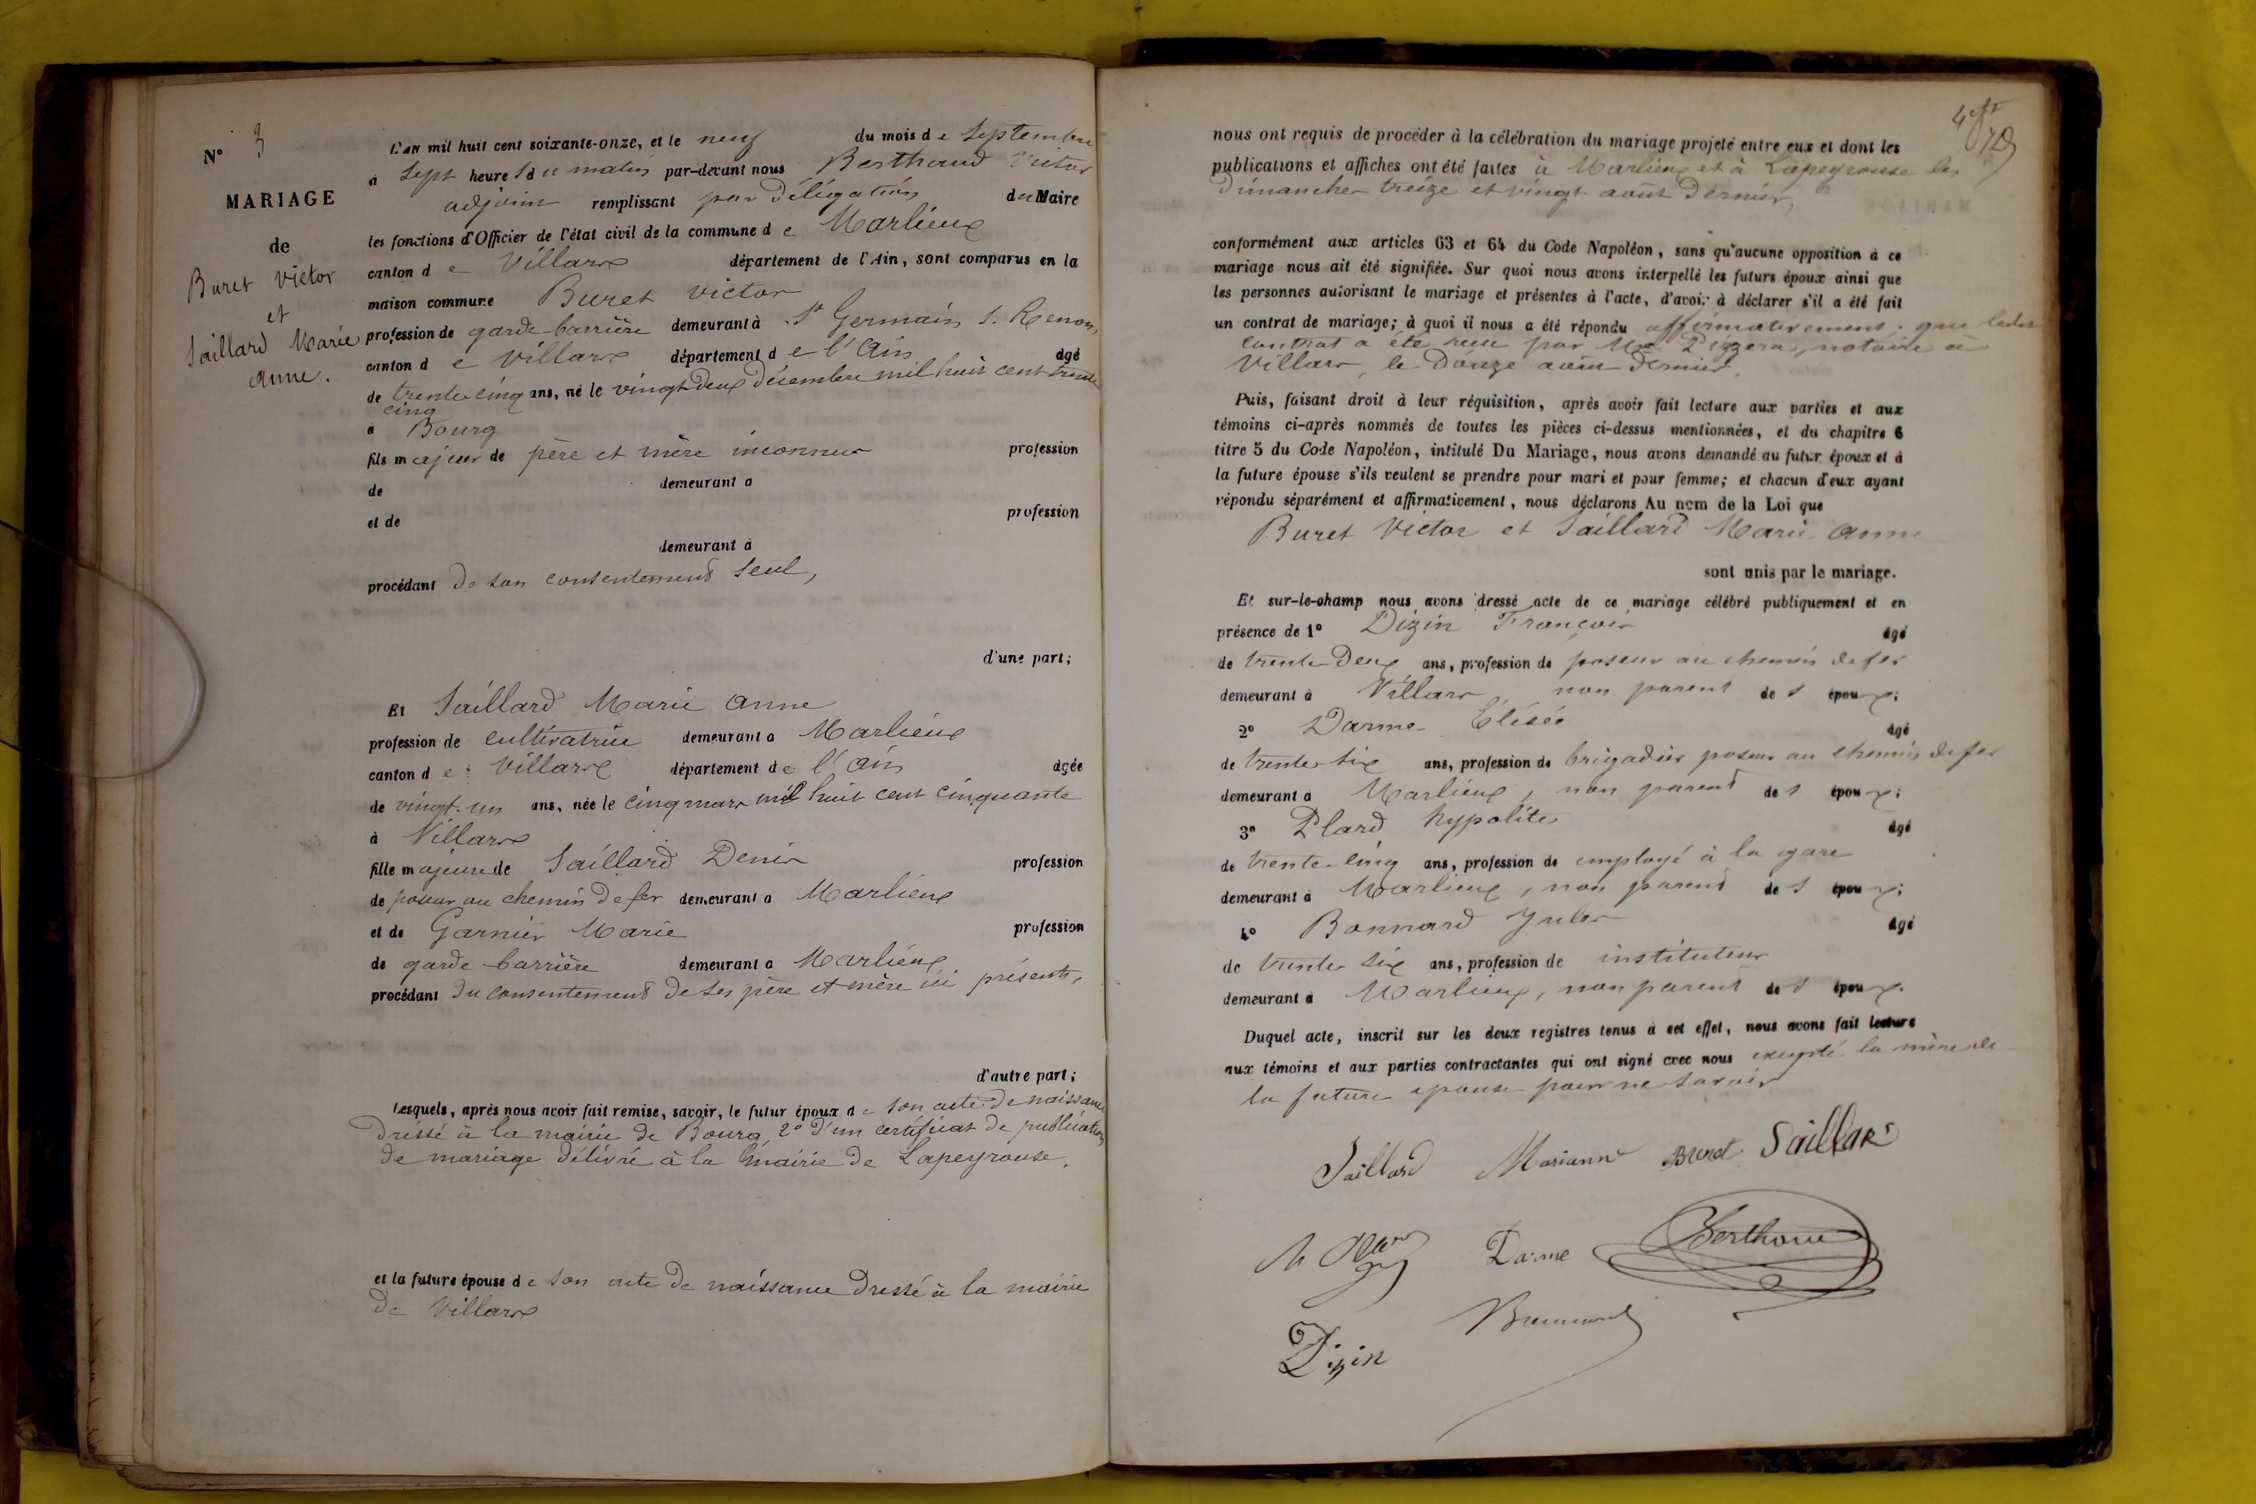 N° 3
MARIAGE
de
Buret Victor
et
Saillard Marie
anne.
L'an mil huit cent soixante-onze, et le neuf du mois de Septembre
à Sept heures du matin par-devant nous Berthoud Victor
adjoint remplissant par délégation du Maire
les fonctions d'Officier de l'état civil de la commune de Marlieux
canton de Villars département de l'Ain, sont comparus en la
maison commune Buret Victor
profession de garde-barrière demeurant à St Germain s. Renom
canton de Villars département de l'Ain âgé
de trente cinq ans, né le vingt deux décembre mil huit cent trente
cinq
à Bourg
fils majeur de père et mère inconnus profession
de demeurant à
et de profession
demeurant à
procédant de son consentement seul,
d'une part;
Et Saillard Marie anne
profession de cultivatrice demeurant à Marlieux
canton de Villars département de l'Ain âgée
de vingt-un ans, née le cinq mars mil huit cent cinquante
à Villars
fille majeure de Saillard Denis profession
de poseur au chemin de fer demeurant à Marlieux
et de Garnier Marie profession
de garde-barrière demeurant à Marlieux
procédant du consentement de ses père et mère ici présents,
d'autre part;
Lesquels, après nous avoir fait remise, savoir, le futur époux de son acte de naissance
dressé à la mairie de Bourg, 2° d'un certificat de publication
de mariage délivré à la mairie de Lapeyrouse.
et la future épouse de son acte de naissance dressé à la mairie
de Villars
nous ont requis de procéder à la célébration du mariage projeté entre eux et dont les
publications et affiches ont été faites à Marlieux et à Lapeyrouse les
dimanches treize et vingt août dernier,
conformément aux articles 63 et 64 du Code Napoléon, sans qu'aucune opposition à ce
mariage nous ait été signifiée. Sur quoi nous avons interpellé les futurs époux ainsi que
les personnes autorisant le mariage et présentes à l'acte, d'avoir à déclarer s'il a été fait
un contrat de mariage; à quoi il nous a été répondu affirmativement, que ledit
contrat a été reçu par Me notaire à
Villars, le douze août dernier.
Puis, faisant droit à leur réquisition, après avoir fait lecture aux parties et aux
témoins ci-après nommés de toutes les pièces ci-dessus mentionnées, et du chapitre 6
titre 5 du Code Napoléon, intitulé Du Mariage, nous avons demandé au futur époux et à
la future épouse s'ils veulent se prendre pour mari et pour femme; et chacun d'eux ayant
répondu séparément et affirmativement, nous déclarons Au nom de la Loi que
Buret Victor et Saillard Marie anne
sont unis par le mariage.
Et sur-le-champ nous avons dressé acte de ce mariage célébré publiquement et en
présence de 1° Dizin François âgé
de trente-deux ans, profession de poseur au chemin de fer
demeurant à Villars, non parent des époux;
2° Darme Élisée âgé
de trente-six ans, profession de brigadier poseur au chemin de fer
demeurant à Marlieux, non parent des époux;
3° Plard hypolite âgé
de trente-cinq ans, profession de employé à la gare
demeurant à Marlieux, non parent des époux;
4° Bonnard Jules âgé
de trente six ans, profession de instituteur
demeurant à Marlieux, non parent des époux.
Duquel acte, inscrit sur les deux registres tenus à cet effet, nous avons fait lecture
aux témoins et aux parties contractantes qui ont signé avec nous excepté la mère de
la future épouse pour ne savoir
Saillard Marianne Buret Saillar
Darme Berthoud
Bonnard
Dizin